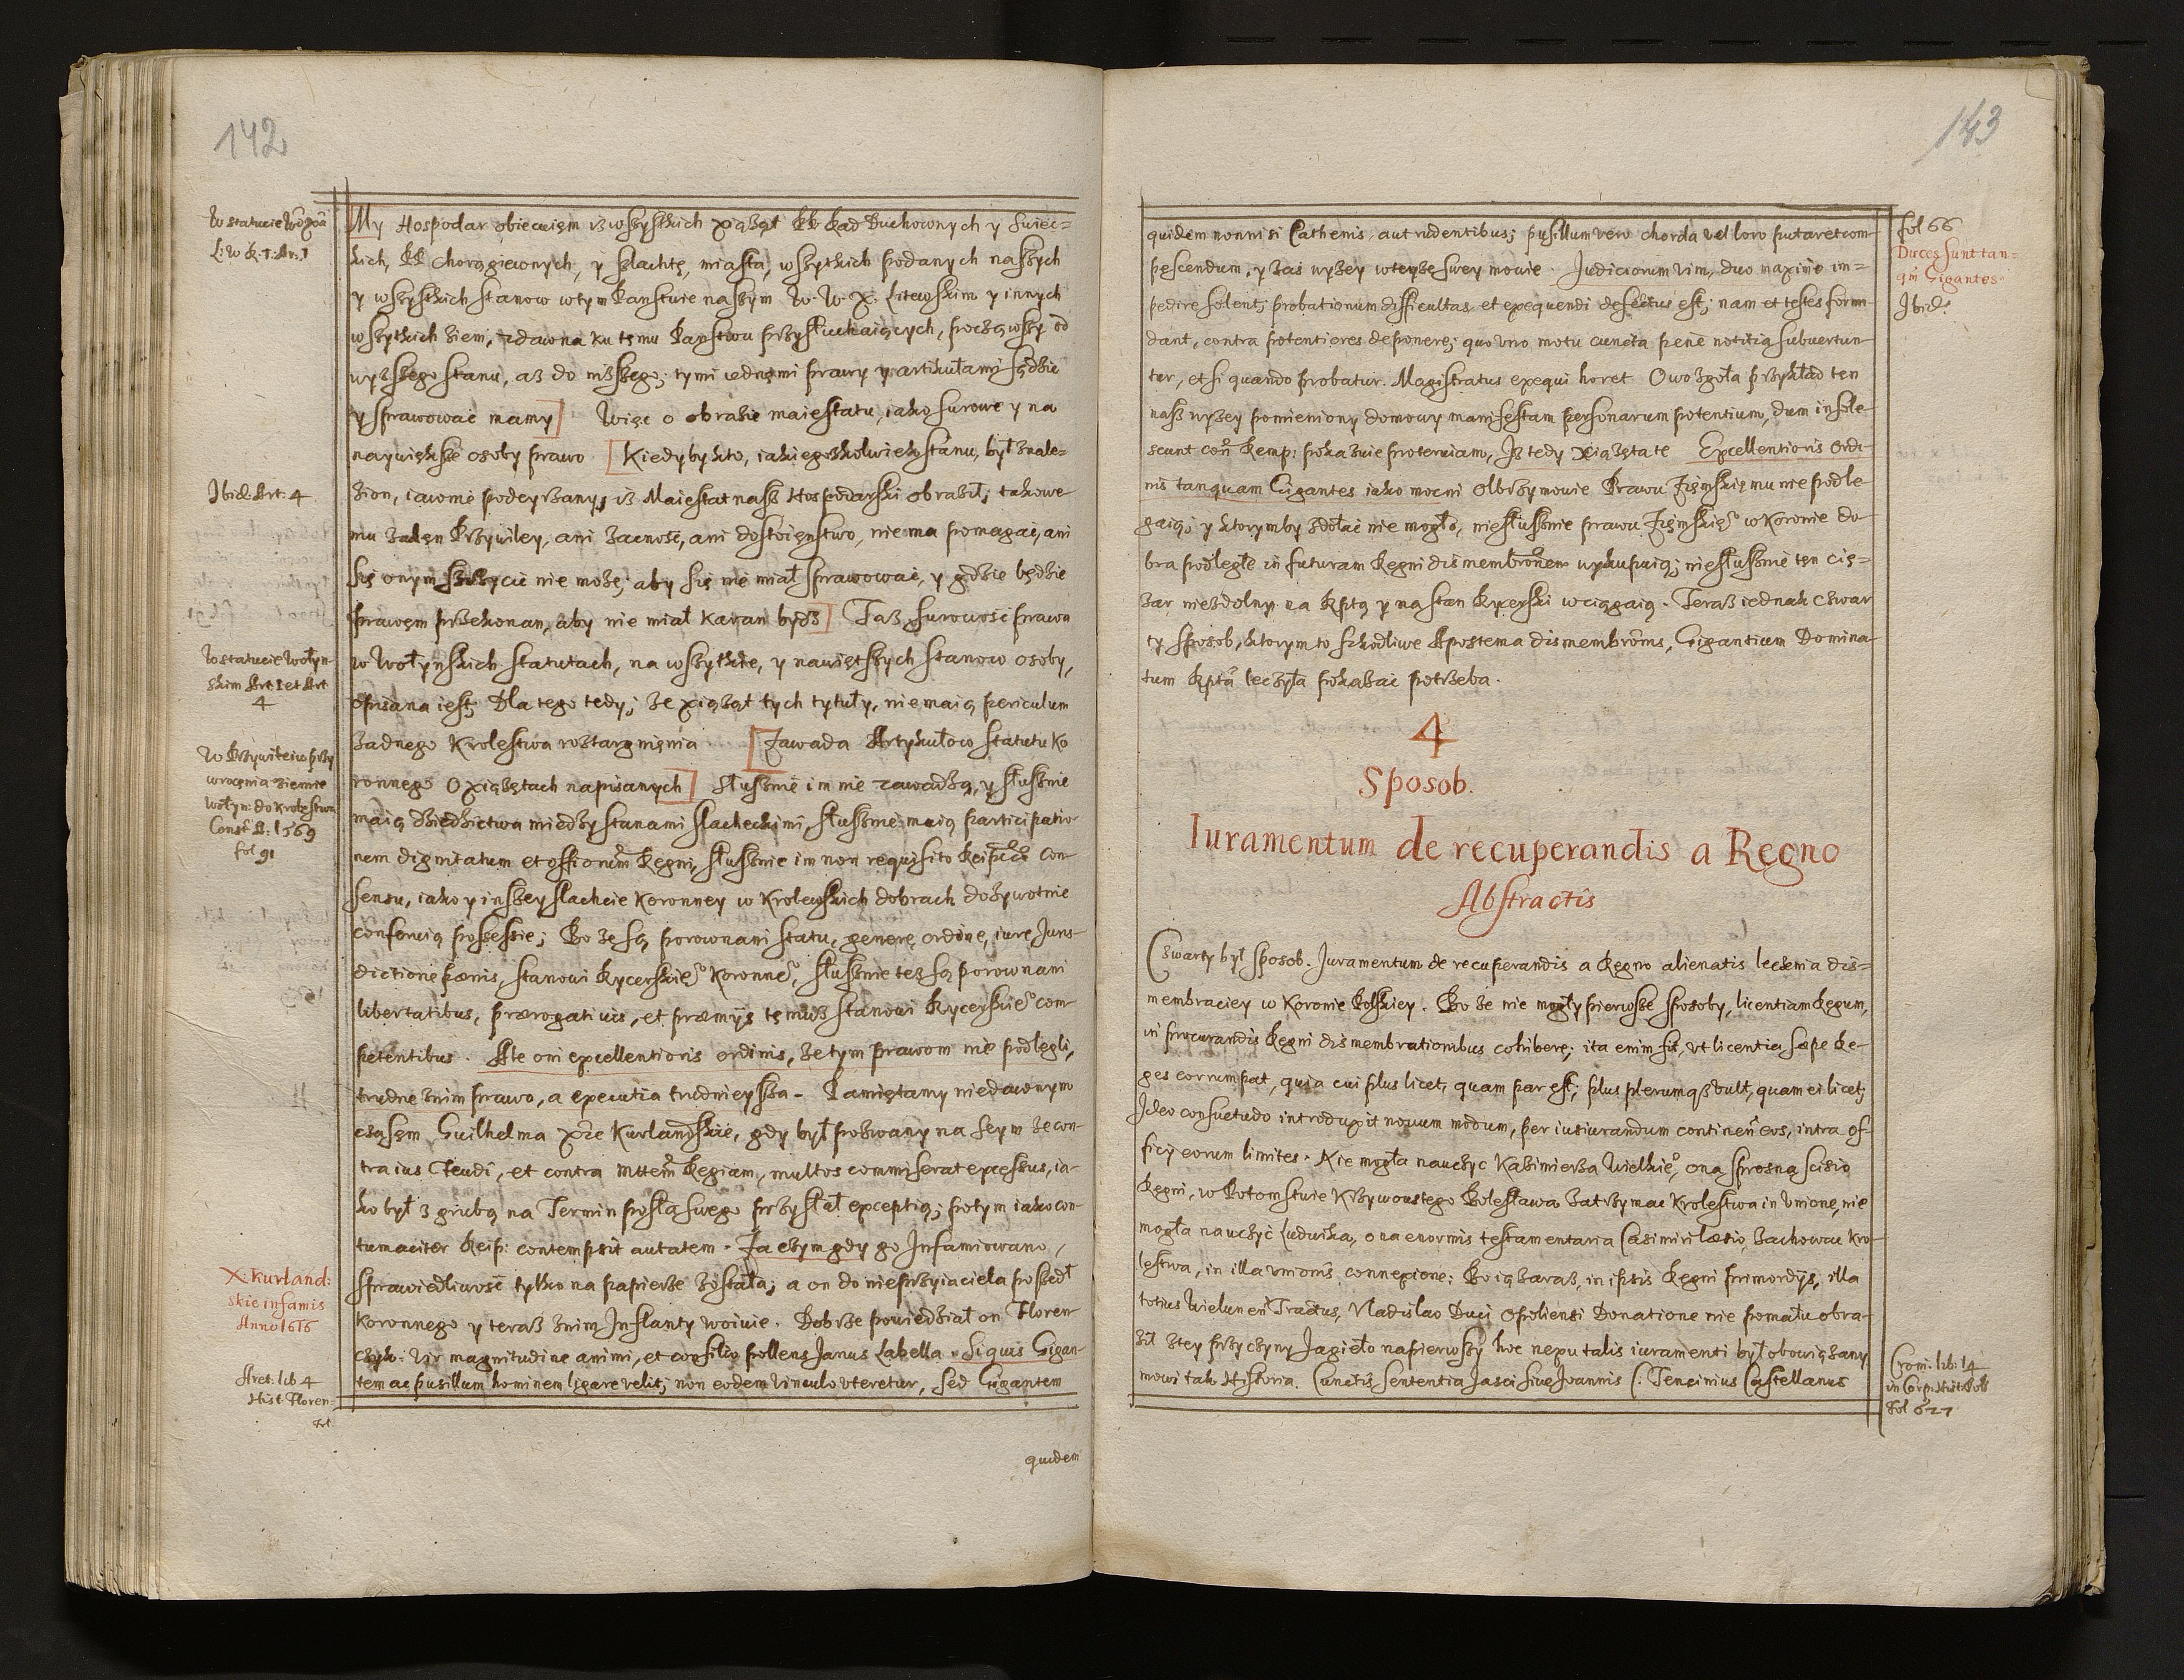 142
W statucie W. Xa
Li: W R: 1: Ar: 1
My Hospodar obiecuięm iż wszystkich xiążąt PP. Rad Duchownych y Swiec=
kich, PP Chorągiewnych, y szlachtę, miasta, wszytkich podanych naszych
y wszystkich stanow w tym Panstwie naszym W. W. X. Litewskim y innych
wszytkich ziem, zdawna ku tęmu Panstwu przysłuchaiących, począwszy od
wyższego stanu, aż do niższego; tymi iednęmi prawy y artikułami sądzic
y sprawowac mamy] Więc o obrazie maiestatu, iako surowe y na
naywiększe osoby prawo [Kiedyby kto, iakiegożkolwiek stanu, był znale=
Ibid: Art: 4
zion, iawnie podeyrzany, iż Maiestat nasz Hospodarski obraził; takowe
mu żadęn Przywiley, ani zacność, ani dostoięnstwo, nie ma pomagać, ani
się onym szczycić nie może; aby się nie miał sprawować, y gdzie będzie
prawęm przekonan, aby nie miał karan bydź] Taż surowość prawa
W statucie Wołyn
skim Art: 1 et Art
4
w Wołynskich statutach, na wszytkie, y nawiętszych stanow osoby,
opisana iest; Dla tego tedy; że xiążąt tych tytuły, nie maią periculum
żadnego Krolestwa roztargnięnia [Zawada Artykułow statutu Ko
W Przywileiu przy
wrocęnia ziemie
Wołyn: do Krolęstwa
Const A: 1569
fol 91
ronnego O xiążętach napisanych] Słusznie im nie zawadzą, y słusznie
maią dziedzictwa miedzy stanami slacheckimi, słusznie maią participatio-
nem dignitatum et officioru Regni, słusznie im non requisito Reipcæ con-
sensu, iako y inszey slachcie Koronney w Krolewskich dobrach dożywotnie
conferuią possessie; Bo że są porownani statu, genere, ordine, iure, Juris-
dictione pænis, stanowi Rycerskieo Koronneo, słusznie też są porownani
libertatibus, prærogatiuis, et præmijs tęmuż stanowi Rycerskieo com-
petentibus. Ale oni excellentioris ordinis, że tym prawom nie podlegli,
trudne z nim prawo, a executia trudnieysza. Pamiętamy niedawnym
czasęm Guilhelma Xże Kurlandskie, gdy był pozwany na seym że con-
tra ius Feudi, et contra Mttem Regiam, multos commiserat excessus, ia-
ko był z grubą na Termin posła swego przysłał exceptią; potym iako con-
tumaciter Reip: contempsit autatem. Za czym gdy go Infamiowano,
X. Kurland:
skie infamis
Anno 1616
sprawiedliwość tylko na papierze została; a on do nieprzyiaciela poszedł
Koronnego y teraz z nim Inflanty woiuie. Dobrze powiedział on Floren-
czyk: Vir magnitudine animi, et consilio pollens Janus Labella. Siquis Gigan-
Aret: lib 4
Hist: Floren:
fol
tem ac pusillum hominem ligare velit; non eodem vinculo vteretur, sed Gigantem
quidem
143
fol 66
Duces sunt tan=
qm Gigantes
Ibid:
quidem nonnisi Cathenis, aut rudentibus; pusillum vero chorda vel loro putaret com-
pescendum, y zaś wyzey w teyże swey mowie. Judiciorum vim, duo maxime im=
pedire solent; probationum difficultas et exequendi defectus est; nam et testes formi-
dant, contra potentiores deponere; quo vno motu cuncta pene notitia subuertun-
tur, et si quando probatur. Magistratus exequi horet Owo zgoła przykład ten
nasz wyżey pomieniony domowy manifestam personarum potentium, dum insole-
scunt con Remp: pokazuie proteruiam, Iż tedy xiążęta te Excellentioris Ordi-
nis tanquam Gigantes iako mocni Olbrzymowie Prawu Zięmskięmu nie podle
gaią, y ktorym by zdołać nie mogło, niesłusznie prawu Zięmskięo w Koronie do-
bra podległe in futuram Regni dismembronem wykupuią; niesłusznie tęn cię=
żar niezdolny na Rptą y na stan Rycerski wciągaią. Teraz iednak czwar
ty sposob, ktorym to szkodliwe Apostema dismembronis, Giganticum Domina-
tum Rpta leczyła pokazać potrzeba.
4
Sposob.
Iuramentum de recuperandis a Regno
Abstractis
Czwarty był sposob. Juramentum de recuperandis a Regno alienatis leczenia dis=
membraciey w Koronie Polskiey. Bo że nie mogły pierwsze sposoby, licentiam Regum,
in procurandis Regni dismembrationibus cohibere; ita enim fit, vt licentia sæpe Re-
ges corrumpat, quia cui plus licet, quam par est; plus plerumq3 vult, quam ei licet;
Ideo consuetudo introduxit nouum modum, per iusiurandum continen eos, intra of-
ficij eorum limites. Nie mogła nauczyc Kazimierza Wielkieo, ona sprosna scisio
Regni, w Potomstwie Krzywoustego Bolesława zatrzymac Krolestwa in vnione, nie
mogła nauczyć Ludwika, ona enormis testamentaria Casimiri læsio, zachowac Kro-
lestwa, in illa vnionis connexione; Bo ią zaraz, in ipsis Regni primordijs, illa
totius Wielunen Tractus, Vladislao Duci Opoliensi Donatione nie pomału obra-
ził z tey przyczyny Jagieło napierwszy hoc nexu talis iuramenti był obowiązany
Crom: lib: 14
in Corp: Hist: Pol:
fol 627
mowi tak Historia. Cunctis sententia Jasci siue Joannis (: Tencinius Castellanus